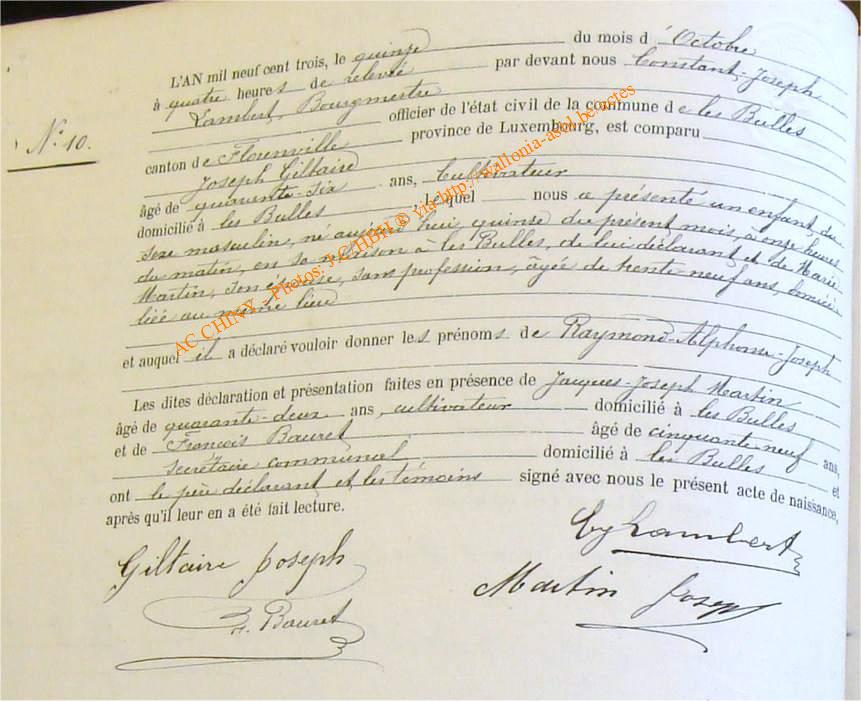 L'AN mil neuf cent trois, le quinze du mois d'Octobre
à quatre heures de relevée par devant nous Constant-Joseph
Lambert, Bourgmestre officier de l'état civil de la commune de les Bulles
N° 10.
canton de Florenville province de Luxembourg, est comparu
Joseph Giltaire
âgé de quarante-six ans, Cultivateur
domicilié à les Bulles, lequel nous a présenté un enfant du
sexe masculin, né aujourd'hui, quinze du présent mois, à onze heures
du matin, en sa maison à les Bulles, de lui déclarant et de Marie
Martin, son épouse, sans profession, âgée de trente-neuf ans, domici-
liée au même lieu
et auquel il a déclaré vouloir donner les prénoms de Raymond-Alphonse-Joseph
Les dites déclaration et présentation faites en présence de Jacques-Joseph Martin
âgé de quarante-deux ans, cultivateur domicilié à les Bulles
et de François Bauret âgé de cinquante-neuf ans,
secrétaire communal domicilié à les Bulles et
ont le père déclarant et les témoins signé avec nous le présent acte de naissance,
après qu'il leur en a été fait lecture.
Giltaire Joseph
Lambert
F. Bauret
Martin Joseph
AC CHINY - Photos: J-C HBH ® via http://wallonia-asbl.be/actes